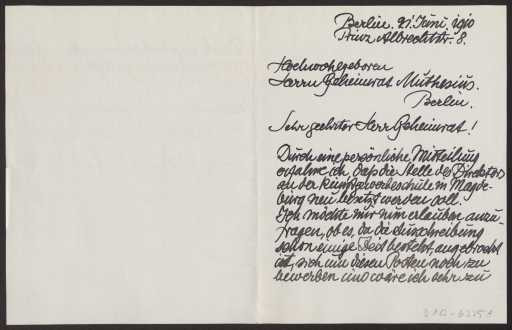 Berlin. 21. Juni 1910
Prinz Albrechtstr. 8.
Hochwohlgeboren
Herrn Geheimrat Muthesius.
Berlin.
Sehr geehrter Herr Geheimrat!
Durch eine persönliche Mitteilung
erfahre ich, daß die Stelle des Direktors
an der Kunstgewerbeschule in Magde-
burg neu besetzt werden soll.
Ich möchte mir nun erlauben anzu-
fragen, ob es, da die Ausschreibung
schon einige Zeit besteht, angebracht
ist, sich um diesen Posten noch zu
bewerben und wäre ich sehr zu